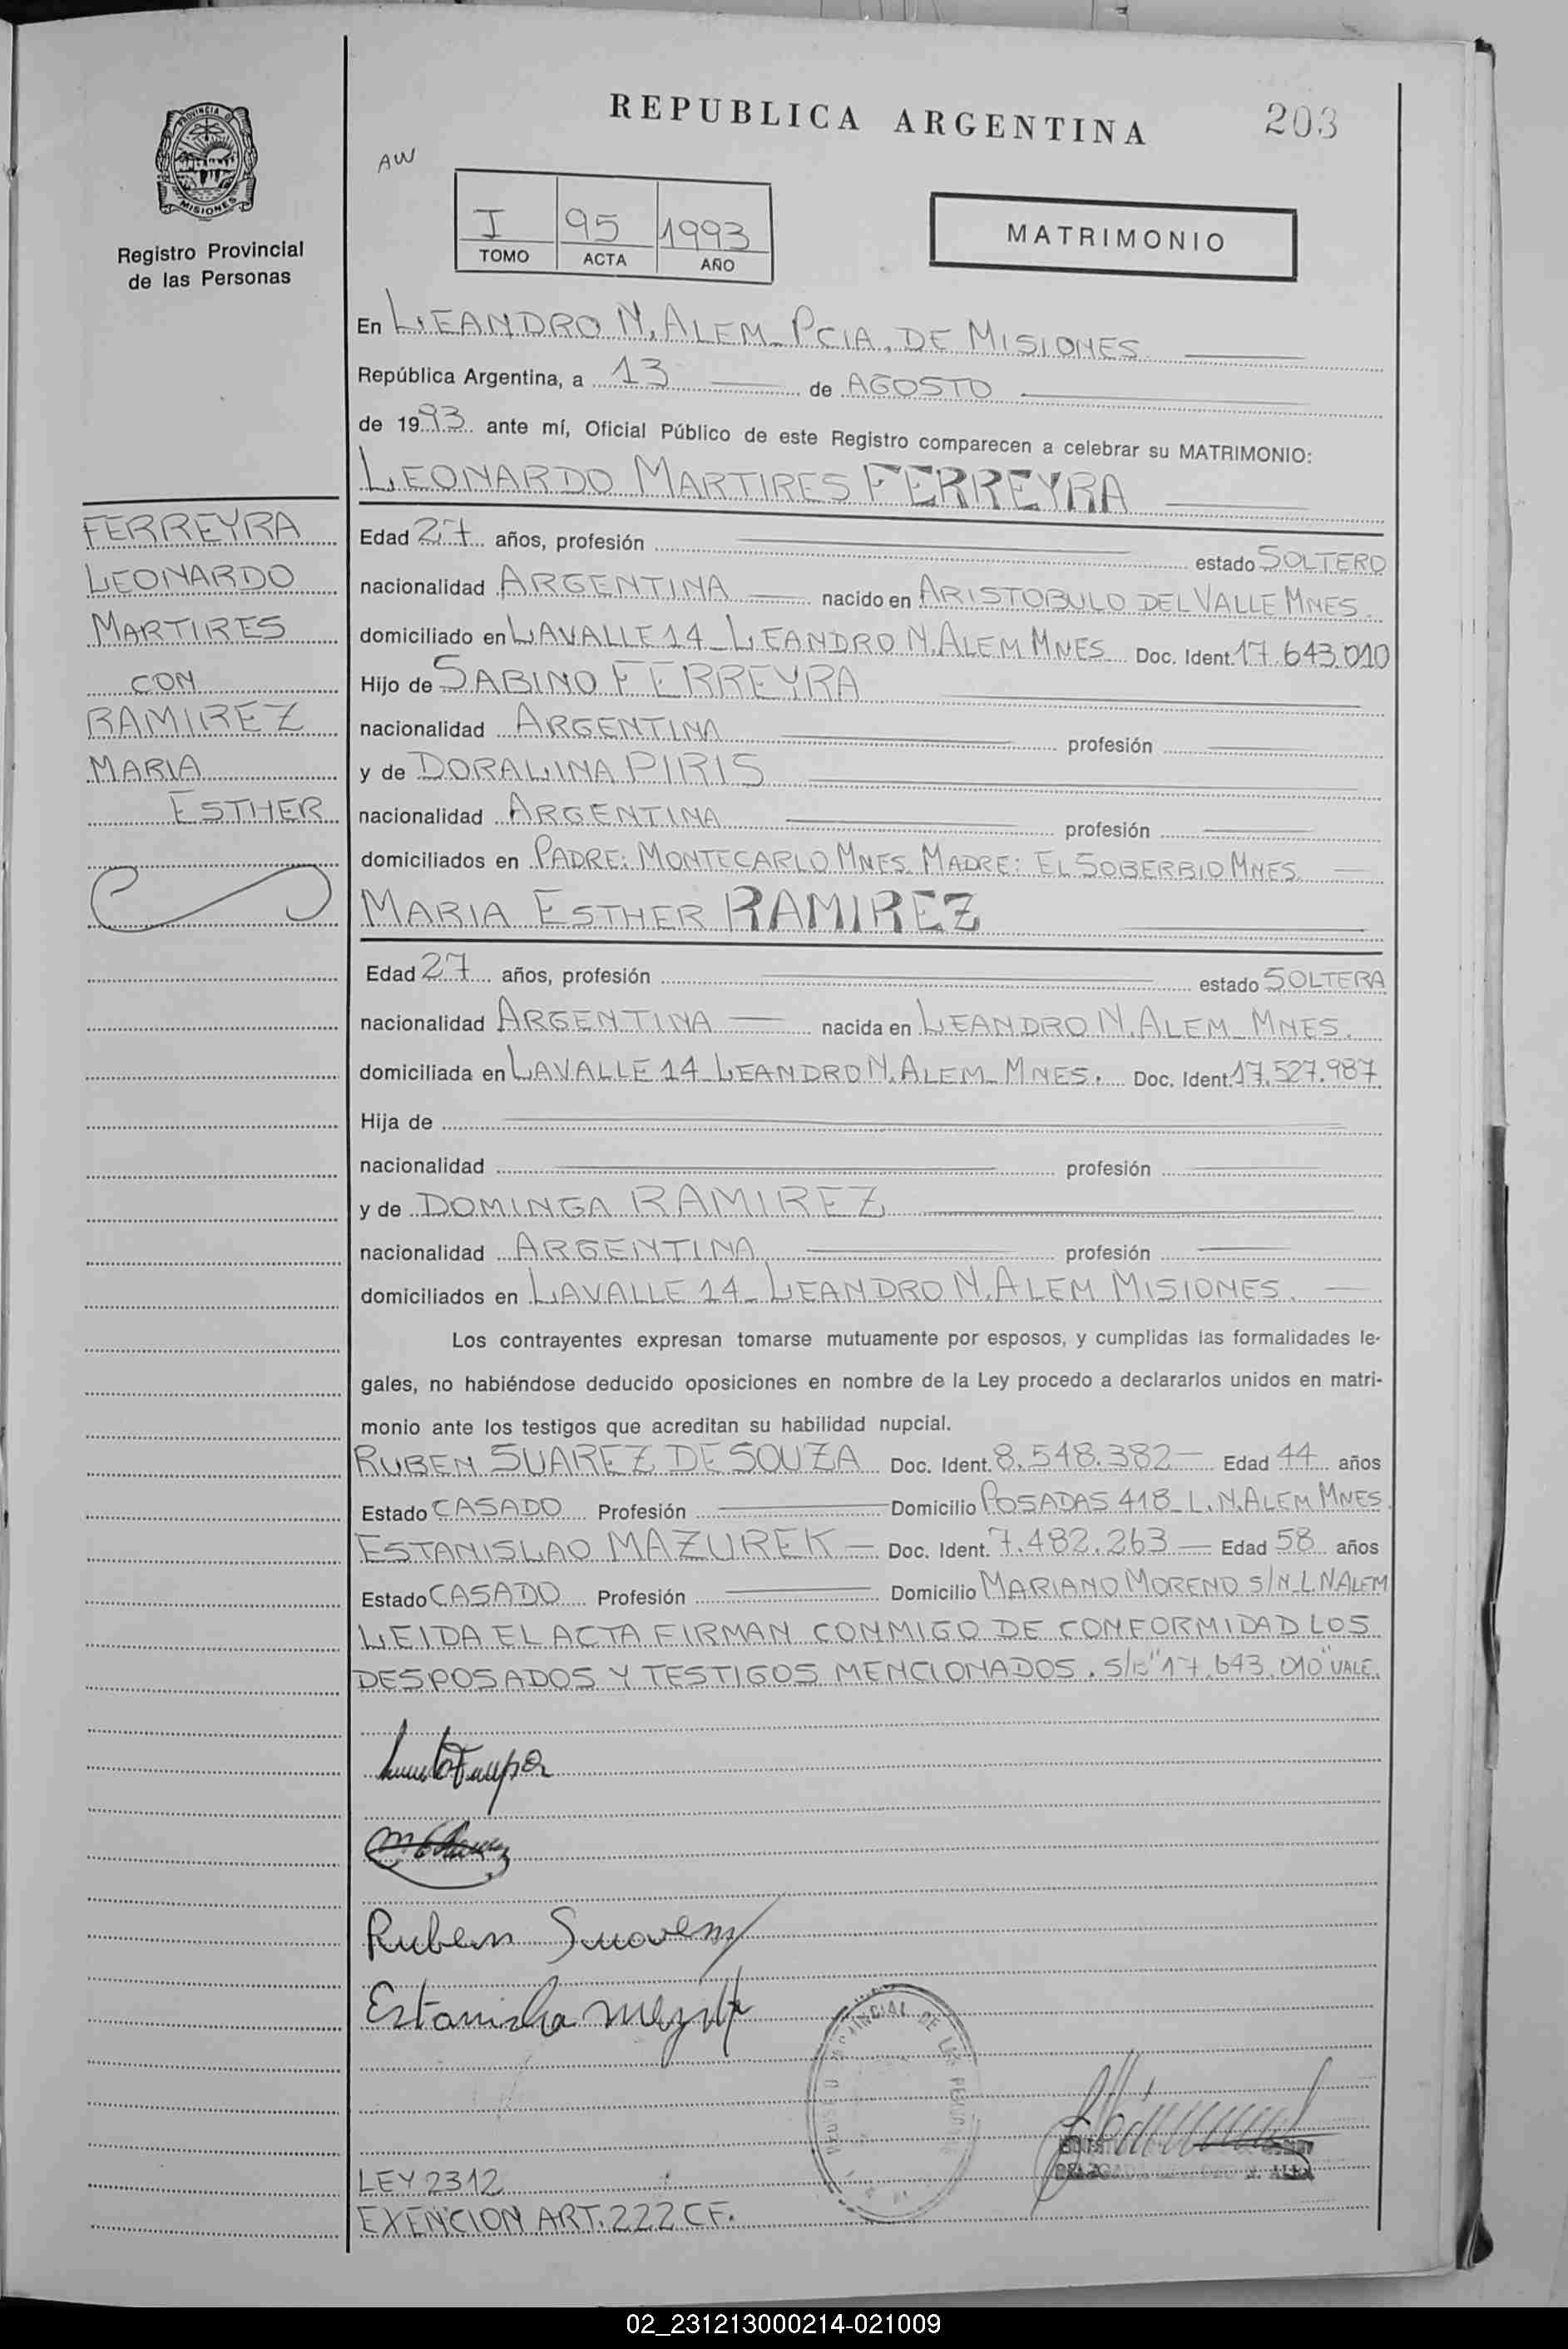 REPUBLICA ARGENTINA
203
PROVINCIA DE
MISIONES
Registro Provincial
de las Personas
AW
I 95 1993
TOMO ACTA AÑO
MATRIMONIO
En LEANDRO N. ALEM PCIA. DE MISIONES
República Argentina, a 13 de AGOSTO
de 1993 ante mí, Oficial Público de este Registro comparecen a celebrar su MATRIMONIO:
LEONARDO MARTIRES FERREYRA
FERREYRA
LEONARDO
MARTIRES
CON
RAMIREZ
MARIA
ESTHER
Edad 27 años, profesión estado SOLTERO
nacionalidad ARGENTINA nacido en ARISTOBULO DEL VALLE MNES.
domiciliado en LAVALLE 14_LEANDRO N. ALEM MNES Doc. Ident. 17.643.010
Hijo de SABINO FERREYRA
nacionalidad ARGENTINA profesión
y de DORALINA PIRIS
nacionalidad ARGENTINA profesión
domiciliados en PADRE: MONTECARLO MNES. MADRE: EL SOBERBIO MNES.
MARIA ESTHER RAMIREZ
Edad 27 años, profesión estado SOLTERA
nacionalidad ARGENTINA nacida en LEANDRO N. ALEM_MNES.
domiciliada en LAVALLE 14_LEANDRO N. ALEM_MNES. Doc. Ident. 17.527.987
Hija de
nacionalidad profesión
y de DOMINGA RAMIREZ
nacionalidad ARGENTINA profesión
domiciliados en LAVALLE 14_LEANDRO N. ALEM MISIONES.
Los contrayentes expresan tomarse mutuamente por esposos, y cumplidas las formalidades le-
gales, no habiéndose deducido oposiciones en nombre de la Ley procedo a declararlos unidos en matri-
monio ante los testigos que acreditan su habilidad nupcial.
RUBEN SUAREZ DE SOUZA Doc. Ident. 8.548.382 Edad 44 años
Estado CASADO Profesión Domicilio POSADAS 418_L.N.ALEM MNES.
ESTANISLAO MAZUREK Doc. Ident. 7.482.263 Edad 58 años
Estado CASADO Profesión Domicilio MARIANO MORENO S/N_L.N ALEM
LEIDA EL ACTA FIRMAN CONMIGO DE CONFORMIDAD LOS
DESPOSADOS Y TESTIGOS MENCIONADOS. S/R "17.643.010" VALE.
Ruben
LEY 2312
EXENCION ART. 222 CF.
02_231213000214-021009